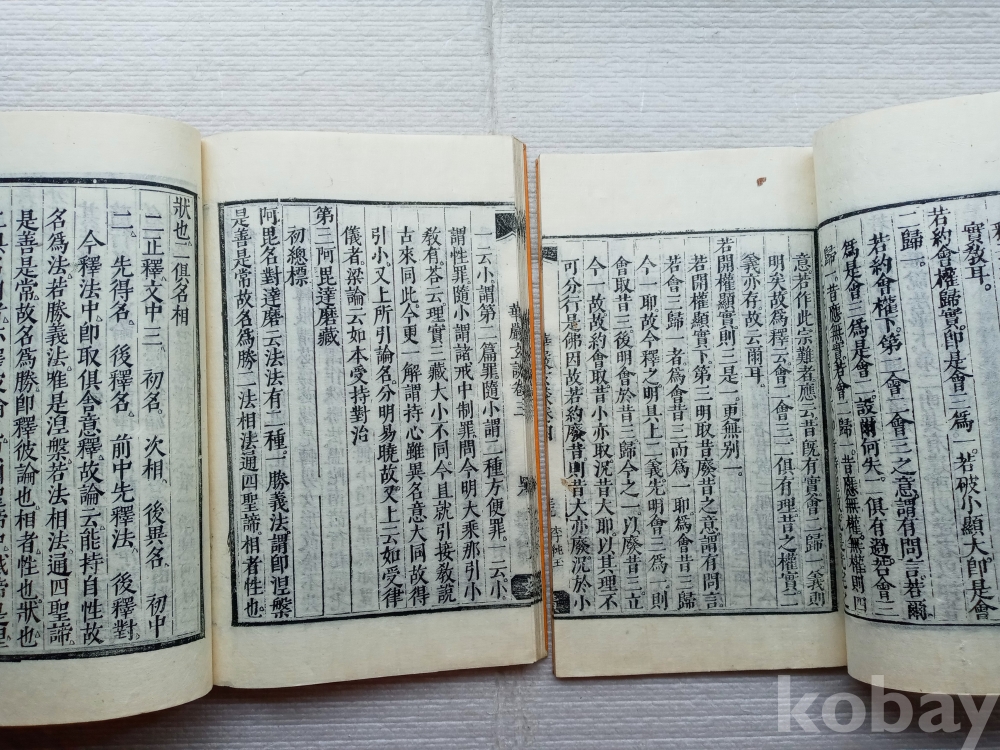 實教耳。
若約會權歸實。即是會三爲一。若破小顯大即是會
二歸一。
若約會權下。第二會二會三之意。謂有問言。若爾
爲是會三爲是會二。設爾何失。二俱有過。若會二
歸一。昔應無實。若會三歸一。昔應無權。無權則四
意若作此宗難者。應云昔既有實。會二歸一義則
明矣。故爲釋云會二會三。二俱有理。昔之權實二
義亦存。故云爾耳。
若開權顯實則三是一。更無別一。
若開權顯實下。第三明取昔廢昔之意。謂有問言
若會三歸一者。爲會昔三而爲一耶。爲會昔三歸
今一耶。故今釋之。明且上一義。先明會三爲一。則
會取昔三。後明會於昔三歸今之一。以廢昔三立
今一故。故約會取。昔小亦取。況昔大耶。以其理不
可分。行是佛因故。若約廢昔。則昔大亦廢。況於小
華嚴玄談卷三
一云小。謂第二篇罪。隨小謂一種方便罪。二云小
謂性罪。隨小謂諸戒中制罪。問今明大乘那引小
敎有。荅云理實三藏大小不同。今且就引接敎說
古來同此。今更一解。謂持心雖異。名意大同。故得
引小。又上所引論名分明易曉故。又上云如受律
儀者。梁論云如本受持對治
第三阿毘達磨藏
初總標
阿毘名對。達磨云法。法有二種。一勝義法。謂卽涅槃
是善是常。故名爲勝。二法相法。通四聖諦。相者性也。
狀也。二俱名相
二正釋。文中三。初名。次相。後異名。初中
二。先得名。後釋名。前中先釋法。後釋對
今釋法中。卽取俱舍意釋。故論云。能持自性故
名爲法。若勝義法。唯是涅槃。若法相法。通四聖諦
是善是常。故名爲勝。卽釋彼論也。相者性也狀也